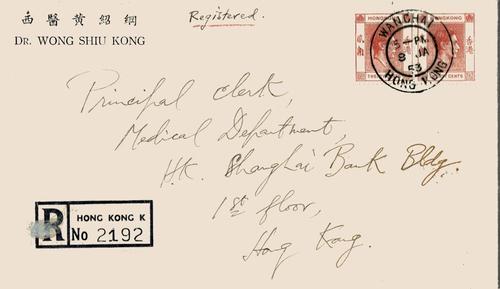 西醫黃紹綱
DR. WONG SHIU KONG
Registered.
HONG KONG
WANCHAI
5-PM
8 JA
53
HONG KONG
香港
CENTS
Principal Clerk,
Medical Department,
H.K. Shanghai Bank Bldg.
1st floor,
Hong Kong.
R HONG KONG K
No 2192